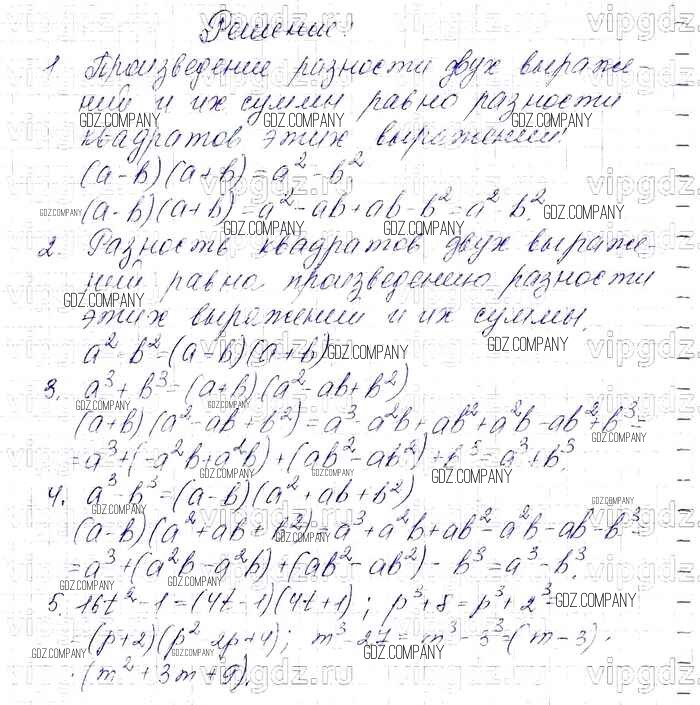 Решение:
1. Произведение разности двух выраже-
ний и их суммы равно разности
квадратов этих выражений:
(a-b)(a+b)=a²-b².
(a-b)(a+b)=a²-ab+ab-b²=a²-b².
2. Разность квадратов двух выраже-
ний равна произведению разности
этих выражений и их суммы.
a²-b²=(a-b)(a+b).
3. a³+b³=(a+b)(a²-ab+b²)
(a+b)(a²-ab+b²)=a³-a²b+ab²+a²b-ab²+b³=
=a³+(-a²b+a²b)+(ab²-ab²)+b³=a³+b³.
4. a³-b³=(a-b)(a²+ab+b²)
(a-b)(a²+ab+b²)=a³+a²b+ab²-a²b-ab²-b³=
=a³+(a²b-a²b)+(ab²-ab²)-b³=a³-b³.
5. 16t²-1=(4t-1)(4t+1); p³+8=p³+2³=
=(p+2)(p²-2p+4); m³-27=m³-3³=(m-3)·
·(m²+3m+9).
vipgdz.ru
GDZ.COMPANY